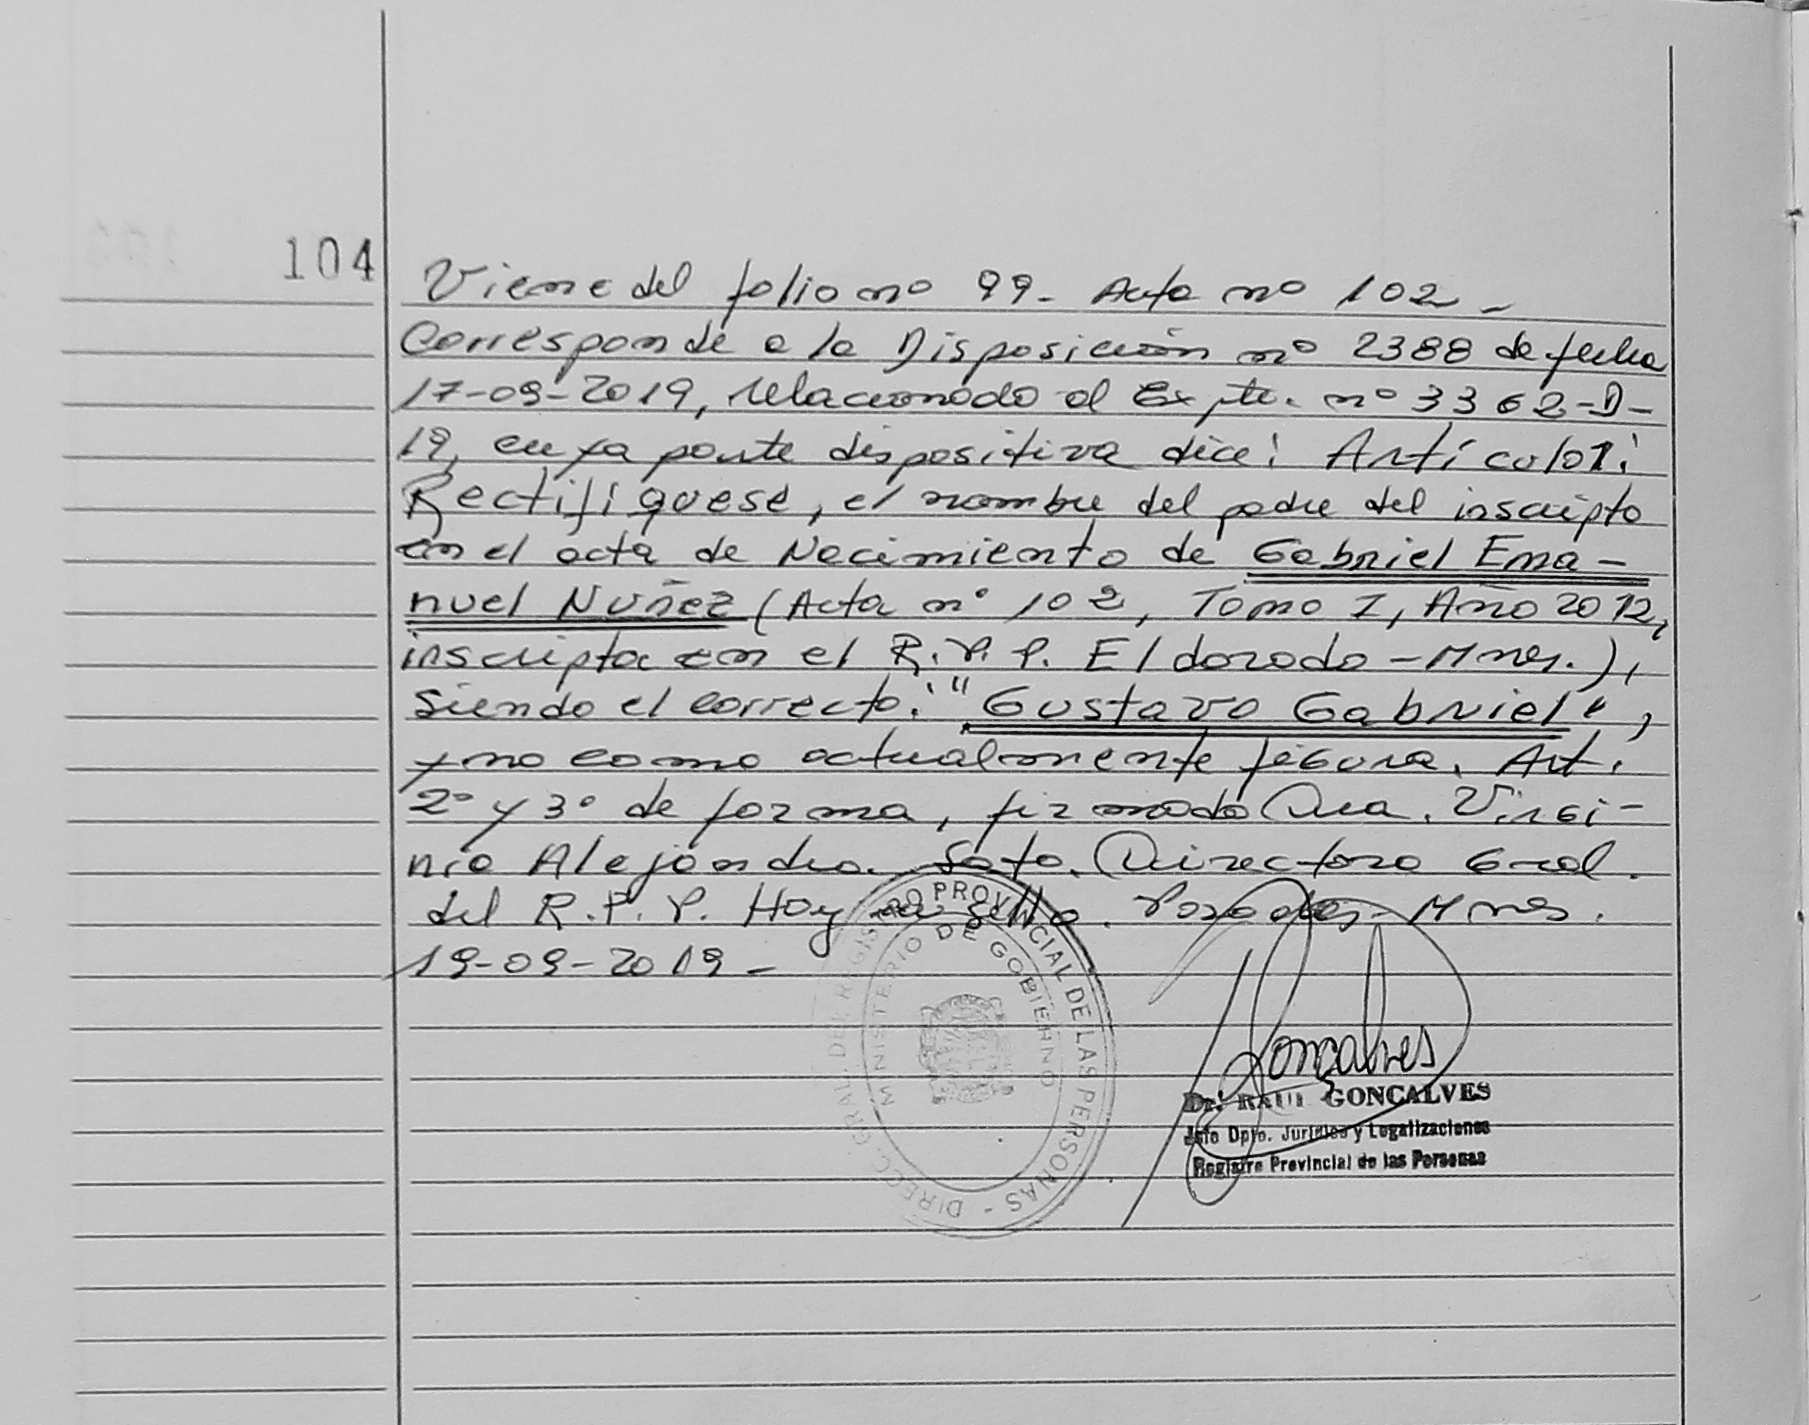 104
Viene del folio nº 99- Acta nº 102-
Corresponde a la Disposición nº 2388 de fecha
17-09-2019, relacionado al Expte. nº 3362-D-
19, cuya parte dispositiva dice: Artículo 1:
Rectifíquese, el nombre del padre del inscripto
en el acta de Nacimiento de Gabriel Ema-
nuel Nuñez (Acta nº 102, Tomo I, Año 2012,
inscripta en el R.P.P. Eldorado - Mnes.),
siendo el correcto: "Gustavo Gabriel",
y no como actualmente figura. Art.
2º y 3º de forma, firmado Dra. Virgi-
nia Alejandra Soto. Directora Gral.
del R.P.P. Hoy sello. Posadas - Mnes.
19-09-2019-
DIRECC. GRAL. DEL REGISTRO PROVINCIAL DE LAS PERSONAS -
MINISTERIO DE GOBIERNO
Gonçalves
Dr. RAUL GONCALVES
Jefe Dpto. Jurídico y Legalizaciones
Registro Provincial de las Personas